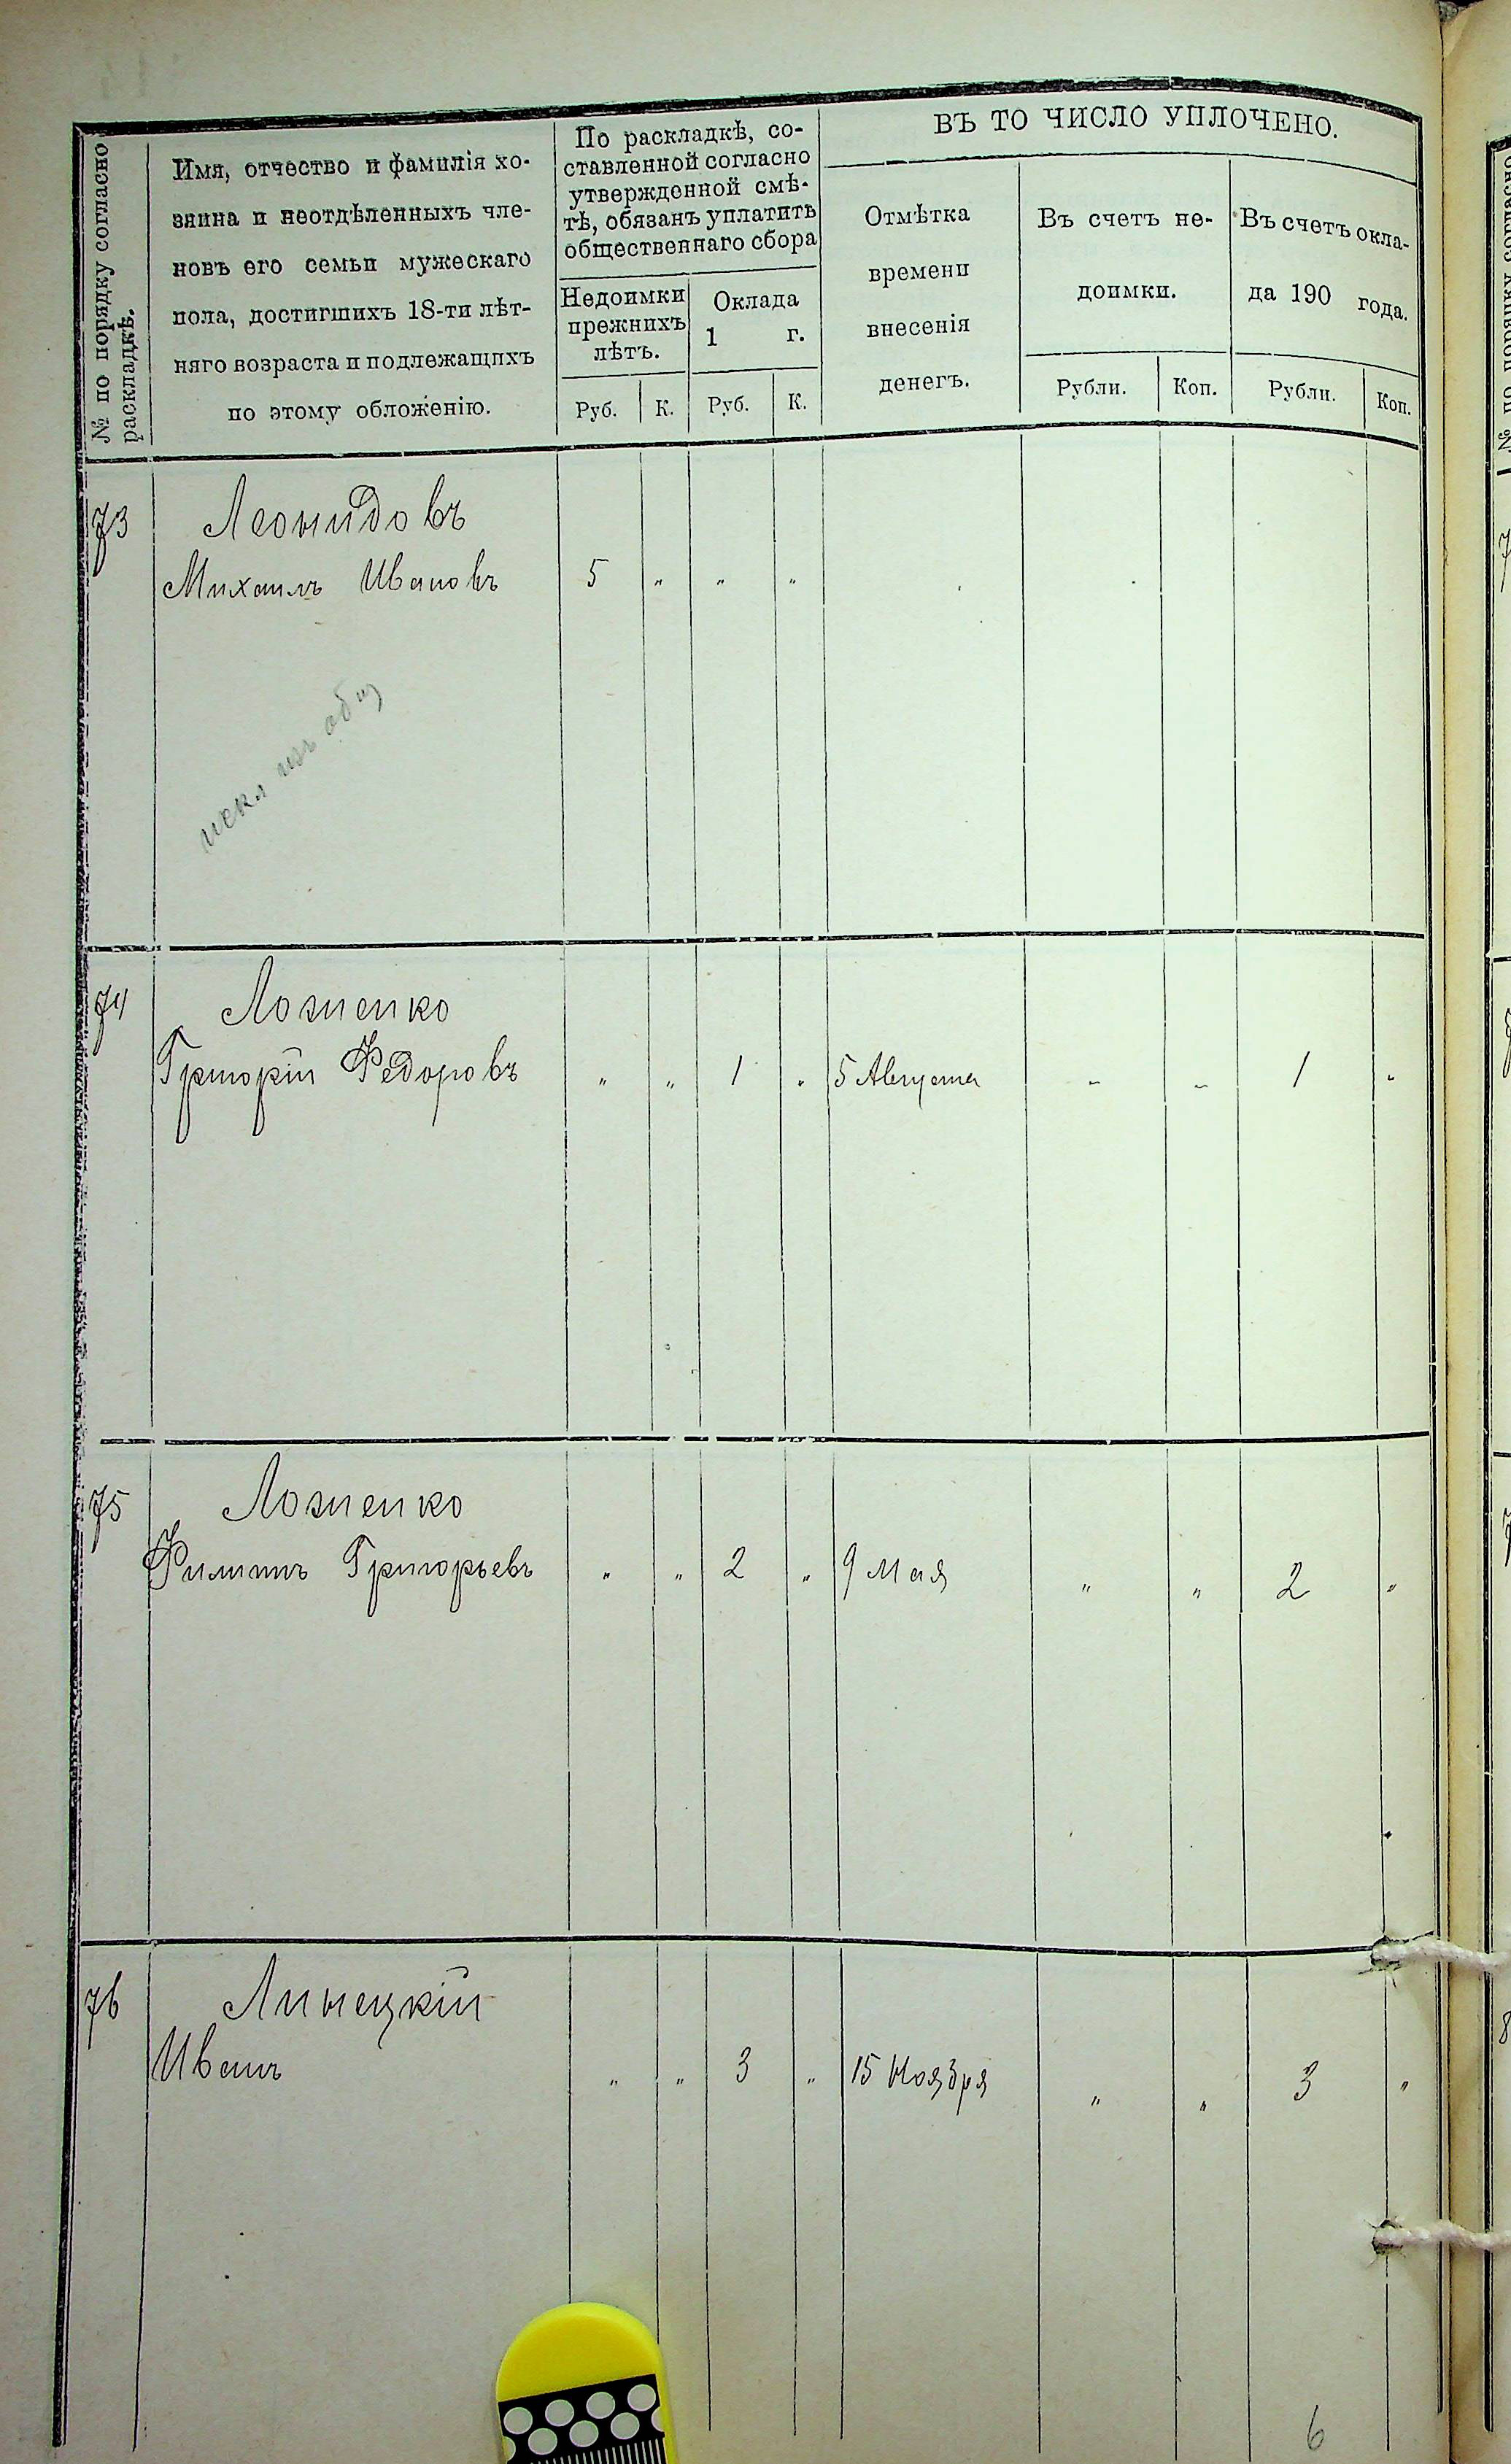 № по порядку согласно
раскладкѣ.
Имя, отчество и фамилія хо-
зяина и неотдѣленныхъ чле-
новъ его семьи мужескаго
пола, достигшихъ 18-ти лѣт-
няго возраста и подлежащихъ
по этому обложенію.
По раскладкѣ, со-
ставленной согласно
утвержденной смѣ-
тѣ, обязанъ уплатить
общественнаго сбора
Недоимки
прежнихъ
лѣтъ.
Руб. К.
Оклада
1 г.
Руб. К.
ВЪ ТО ЧИСЛО УПЛОЧЕНО.
Отмѣтка
времени
внесенія
денегъ.
Въ счетъ не-
доимки.
Рубли. Коп.
Въ счетъ окла-
да 190 года.
Рубли. Коп.
73 Леонидовъ
Михаилъ Ивановъ 5 " " "
искл изъ общ
74 Лозненко
Григорій Федоровъ " " 1 " 5 Августа " " 1 "
75 Лозненко
Филиппъ Григорьевъ " " 2 " 9 Мая " " 2 "
76 Линецкій
Иванъ " " 3 " 15 Ноября " " 3 "
6